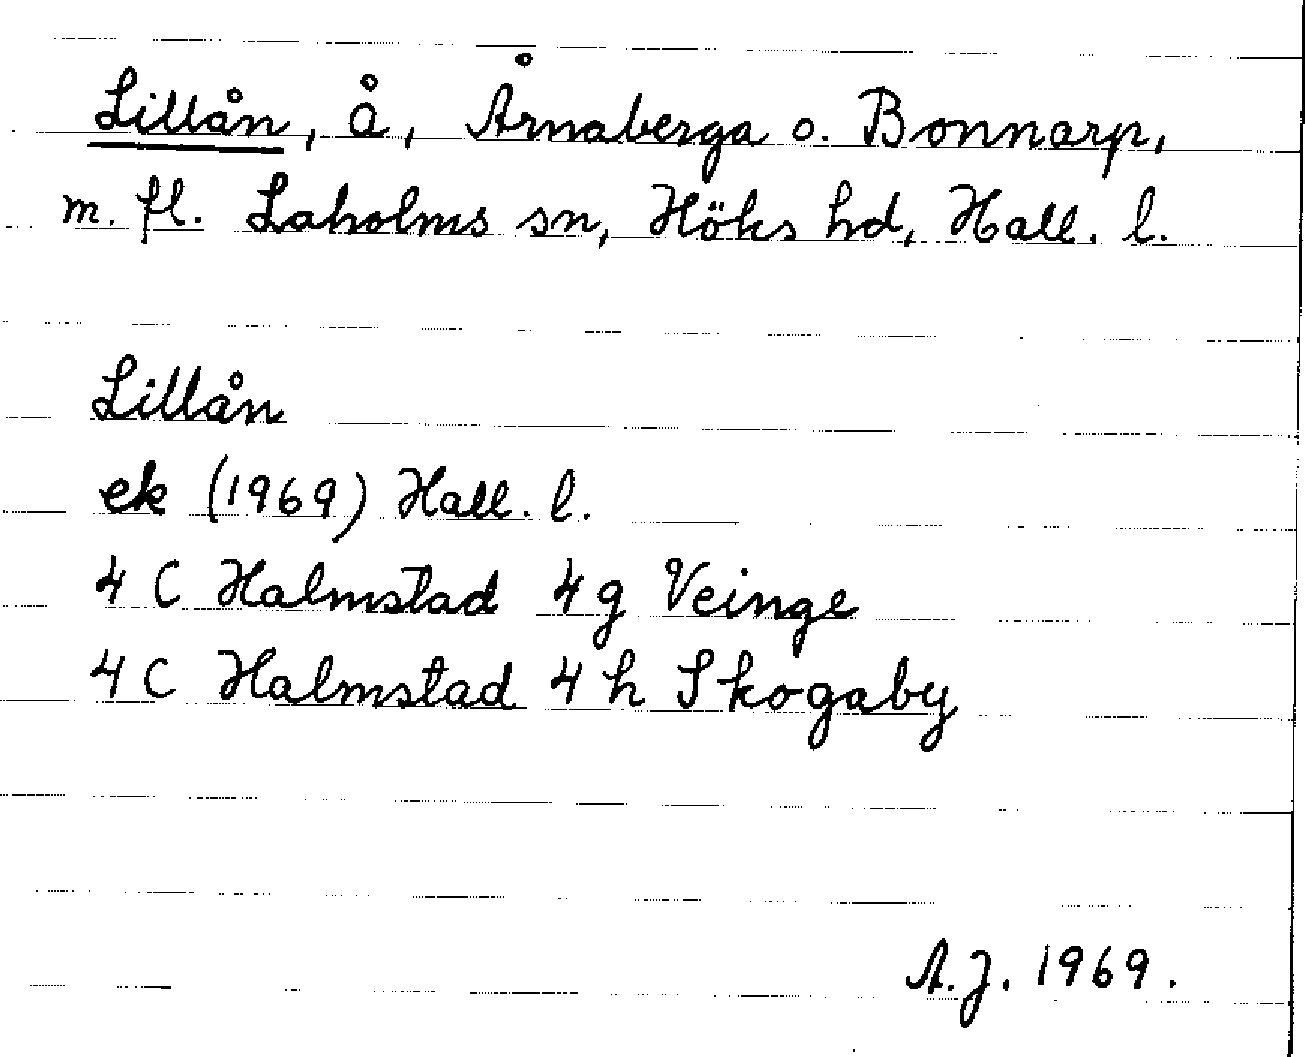 Lillån, å, Årnaberga o. Bonnarp,
m. fl. Laholms sn, Höks hd, Hall. l.
Lillån
ek (1969) Hall. l.
4 C Halmstad 4 g Veinge
4 C Halmstad 4 h Skogaby
A.J. 1969.